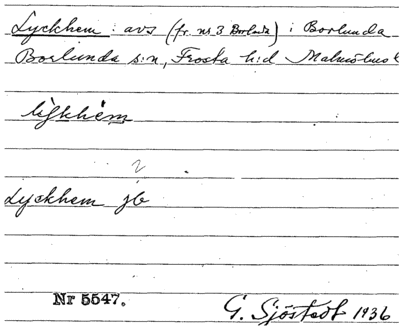 Lyckhem : avs (fr. nr 3 Borlunda) i Borlunda
Borlunda s:n, Frosta h:d Malmöhus l
lýkhèm
2
Lyckhem jb
Nr 5547. G. Sjöstedt 1936